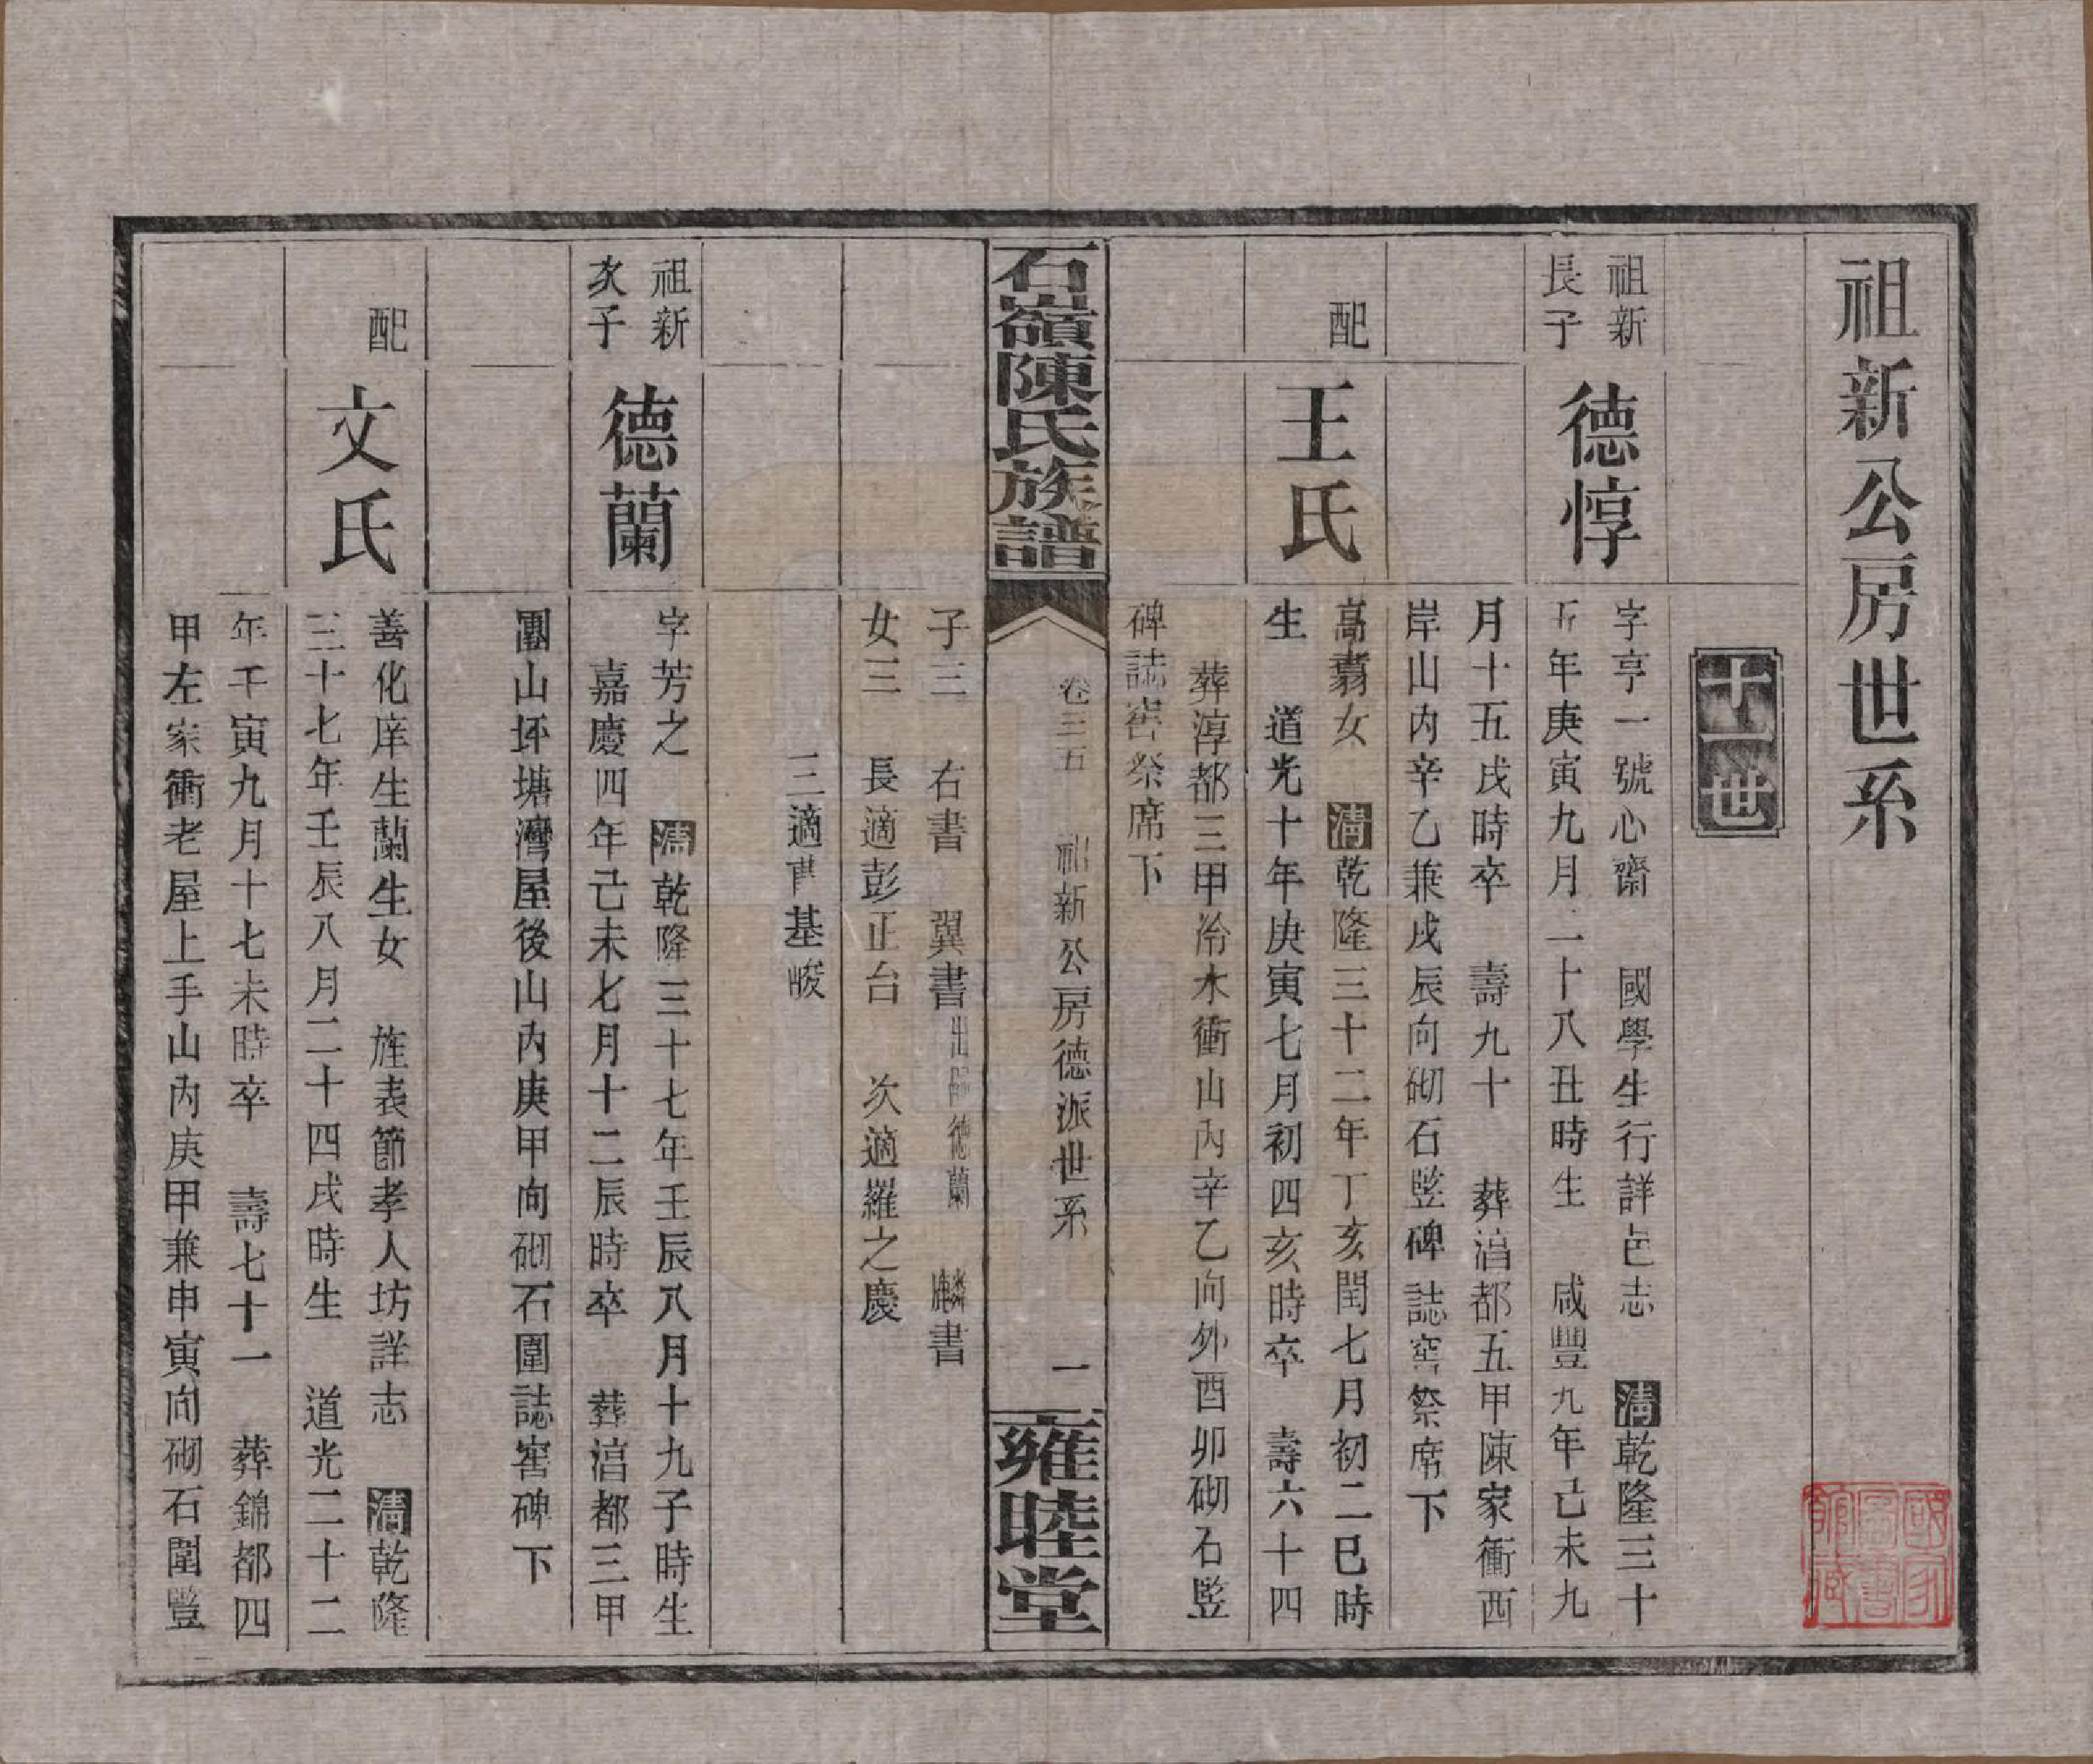 祖新公房世系
十一世
祖新
長子
德惇
字亨一號心齋　國學生行詳邑志　清乾隆三十
五年庚寅九月二十八丑時生　咸豐九年己未九
月十五戌時卒　壽九十　葬㴘都五甲陳家衝西
岸山內辛乙兼戌辰向砌石竪碑誌窖祭席下
配
王氏
高翥女　清乾隆三十二年丁亥閏七月初二巳時
生　道光十年庚寅七月初四亥時卒　壽六十四
葬淳都三甲冷水衝山內辛乙向外酉卯砌石竪
碑誌窖祭席下
石嶺陳氏族譜
卷三五　祖新公房德派世系　一
雍睦堂
子三　右書　翼書出嗣德蘭　麟書
女三　長適彭正台　次適羅之慶
三適曹基畯
祖新
次子
德蘭
字芳之　清乾隆三十七年壬辰八月十九子時生
嘉慶四年己未七月十二辰時卒　葬㴘都三甲
團山坏塘灣屋後山內庚甲向砌石圍誌窖碑下
配
文氏
善化庠生蘭生女　旌表節孝人坊詳志　清乾隆
三十七年壬辰八月二十四戌時生　道光二十二
年壬寅九月十七未時卒　壽七十一　葬錦都四
甲左家衝老屋上手山內庚甲兼申寅向砌石圍豎
國家圖書館藏